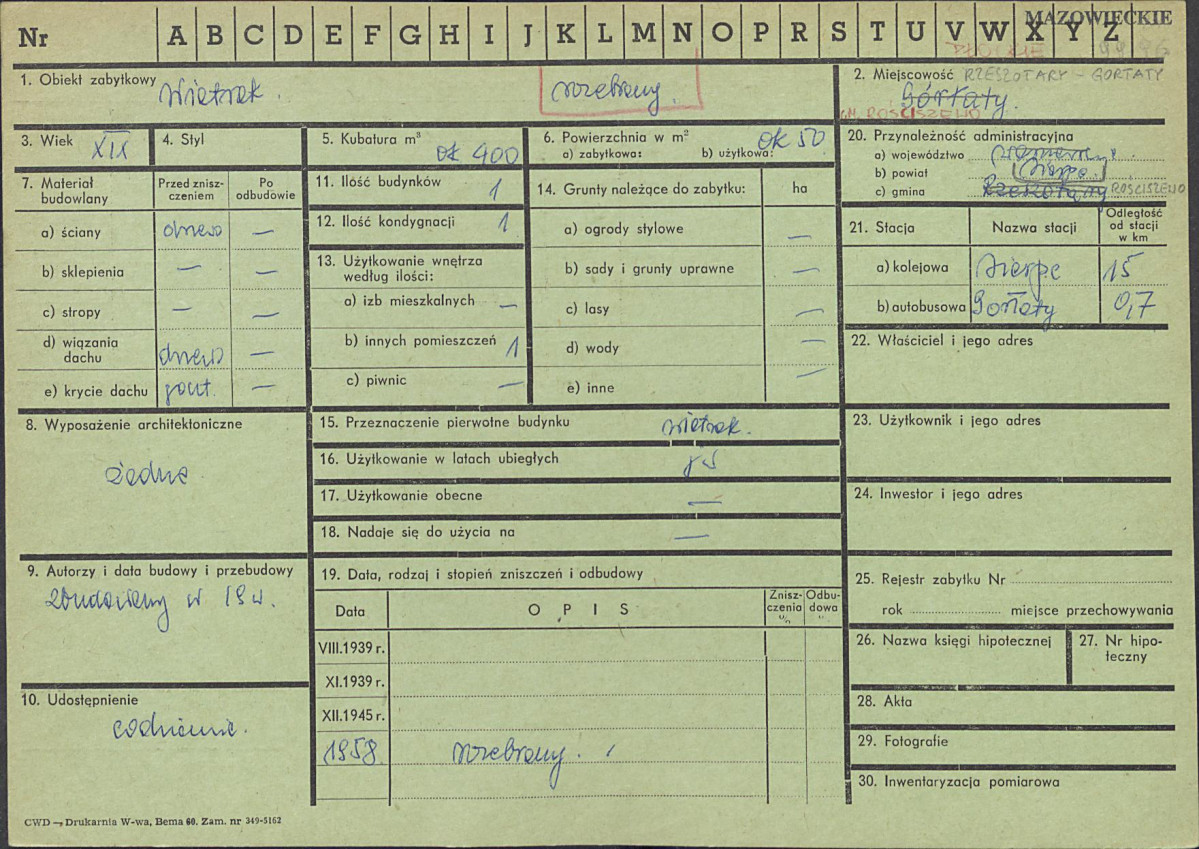 MAZOWIECKIE
Nr A B C D E F G H I J K L M N O P R S T U V W X Y Z
1. Obiekt zabytkowy wiatrak. rozebrany.
2. Miejscowość RZESZOTARY - GORTATY
Górtaty.
GM. ROŚCISZEWO
3. Wiek XIX
4. Styl
5. Kubatura m³ ok 400
6. Powierzchnia w m² ok 50
a) zabytkowa: b) użytkowa:
7. Materiał budowlany
Przed zniszczeniem
Po odbudowie
a) ściany drewo —
b) sklepienia — —
c) stropy — —
d) wiązania dachu drewo —
e) krycie dachu gont. —
8. Wyposażenie architektoniczne
żadne.
9. Autorzy i data budowy i przebudowy
zbudowany w 19 w.
10. Udostępnienie
codziennie.
11. Ilość budynków 1
12. Ilość kondygnacji 1
13. Użytkowanie wnętrza według ilości:
a) izb mieszkalnych —
b) innych pomieszczeń 1
c) piwnic —
14. Grunty należące do zabytku: ha
a) ogrody stylowe —
b) sady i grunty uprawne —
c) lasy —
d) wody —
e) inne —
15. Przeznaczenie pierwotne budynku wiatrak.
16. Użytkowanie w latach ubiegłych
17. Użytkowanie obecne —
18. Nadaje się do użycia na —
19. Data, rodzaj i stopień zniszczeń i odbudowy
Data OPIS Zniszczenia % Odbudowa %
VIII.1939 r.
XI.1939 r.
XII.1945 r.
1958. rozebrany.
20. Przynależność administracyjna
a) województwo
b) powiat Sierpc
c) gmina Rzeszotary ROŚCISZEWO
21. Stacja Nazwa stacji Odległość od stacji w km
a) kolejowa Sierpc 15
b) autobusowa Gortaty 0,7
22. Właściciel i jego adres
23. Użytkownik i jego adres
24. Inwestor i jego adres
25. Rejestr zabytku Nr
rok miejsce przechowywania
26. Nazwa księgi hipotecznej
27. Nr hipoteczny
28. Akta
29. Fotografie
30. Inwentaryzacja pomiarowa
CWD — Drukarnia W-wa, Bema 60. Zam. nr 349-5162